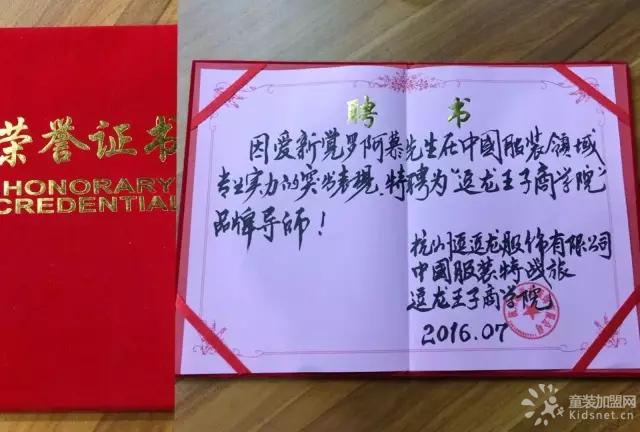 荣誉证书
HONORARY
CREDENTIAL
聘书
因爱新觉罗阿慕先生在中國服装领域
专业实力的突出表现,特聘为"逗龙王子商学院"
品牌导师!
杭州逗逗龙服饰有限公司
中國服装特战旅
逗龙王子商学院
2016.07
童装加盟网
Kidsnet.cn